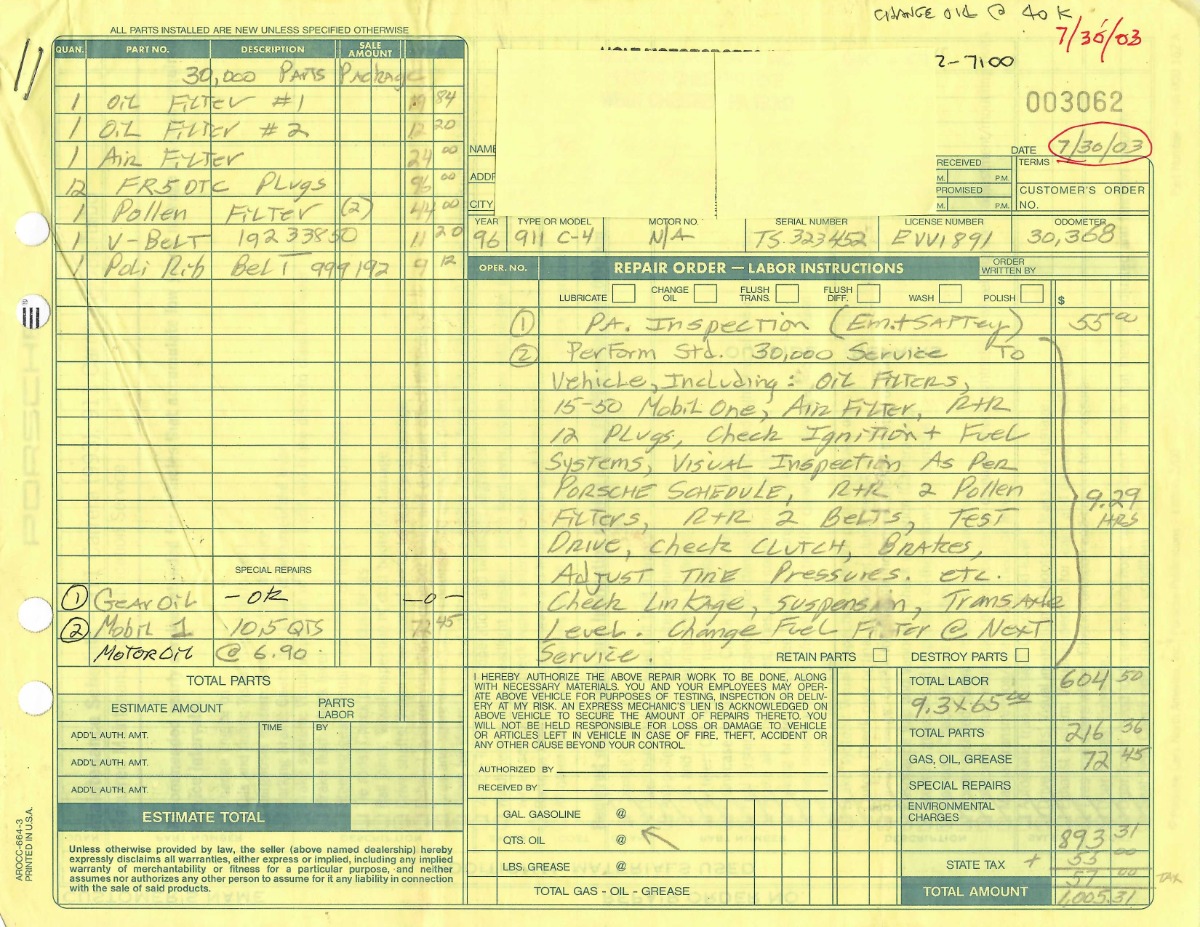 CHANGE OIL @ 40K
7/30/03
2-7100
003062
DATE 7/30/03
ALL PARTS INSTALLED ARE NEW UNLESS SPECIFIED OTHERWISE
QUAN. PART NO. DESCRIPTION SALE AMOUNT
30,000 PARTS Package
1 Oil Filter #1 19 84
1 Oil Filter #2 12 20
1 Air Filter 24 00
12 FR5DTC Plugs 96 00
1 Pollen Filter (2) 44 00
1 V-Belt 19233850 11 20
1 Poli Rib Belt 999192 9 12
SPECIAL REPAIRS
1 Gear Oil - OK -0-
2 Mobil 1 10.5 QTS 72 45
Motor Oil @ 6.90
TOTAL PARTS
ESTIMATE AMOUNT PARTS LABOR
ADD'L AUTH. AMT. TIME BY
ADD'L AUTH. AMT.
ADD'L AUTH. AMT.
ESTIMATE TOTAL
Unless otherwise provided by law, the seller (above named dealership) hereby
expressly disclaims all warranties, either express or implied, including any implied
warranty of merchantability or fitness for a particular purpose, and neither
assumes nor authorizes any other person to assume for it any liability in connection
with the sale of said products.
AROCC-664-3
PRINTED IN U.S.A.
PORSCHE
NAME
ADDR
CITY
RECEIVED
M. P.M.
PROMISED
M. P.M.
TERMS
CUSTOMER'S ORDER NO.
YEAR TYPE OR MODEL MOTOR NO. SERIAL NUMBER LICENSE NUMBER ODOMETER
96 911 C-4 N/A TS.323452 EVV1891 30,368
OPER. NO. REPAIR ORDER — LABOR INSTRUCTIONS ORDER WRITTEN BY
LUBRICATE CHANGE OIL FLUSH TRANS. FLUSH DIFF. WASH POLISH $
1 PA. Inspection (Em.+SAFTey) 55 00
2 Perform Std. 30,000 Service To
Vehicle, Including: Oil Filters,
15-50 Mobil One, Air Filter, R+R
12 Plugs, Check Ignition + Fuel
Systems, Visual Inspection As Per
PORSCHE SCHEDULE, R+R 2 Pollen
Filters, R+R 2 Belts, Test
Drive, Check CLUTCH, BRAKES,
Adjust Tire Pressures. etc.
Check Linkage, Suspension, TransAxle
Level. Change Fuel Filter @ Next
Service.
9.29 HRS
RETAIN PARTS DESTROY PARTS
I HEREBY AUTHORIZE THE ABOVE REPAIR WORK TO BE DONE, ALONG
WITH NECESSARY MATERIALS. YOU AND YOUR EMPLOYEES MAY OPER-
ATE ABOVE VEHICLE FOR PURPOSES OF TESTING, INSPECTION OR DELIV-
ERY AT MY RISK. AN EXPRESS MECHANIC'S LIEN IS ACKNOWLEDGED ON
ABOVE VEHICLE TO SECURE THE AMOUNT OF REPAIRS THERETO. YOU
WILL NOT BE HELD RESPONSIBLE FOR LOSS OR DAMAGE TO VEHICLE
OR ARTICLES LEFT IN VEHICLE IN CASE OF FIRE, THEFT, ACCIDENT OR
ANY OTHER CAUSE BEYOND YOUR CONTROL.
AUTHORIZED BY
RECEIVED BY
GAL. GASOLINE @
QTS. OIL @
LBS. GREASE @
TOTAL GAS - OIL - GREASE
TOTAL LABOR 604 50
9.3X65 00
TOTAL PARTS 216 36
GAS, OIL, GREASE 72 45
SPECIAL REPAIRS
ENVIRONMENTAL CHARGES
893 31
STATE TAX + 55 00
57 00 TAX
TOTAL AMOUNT 1,005.31